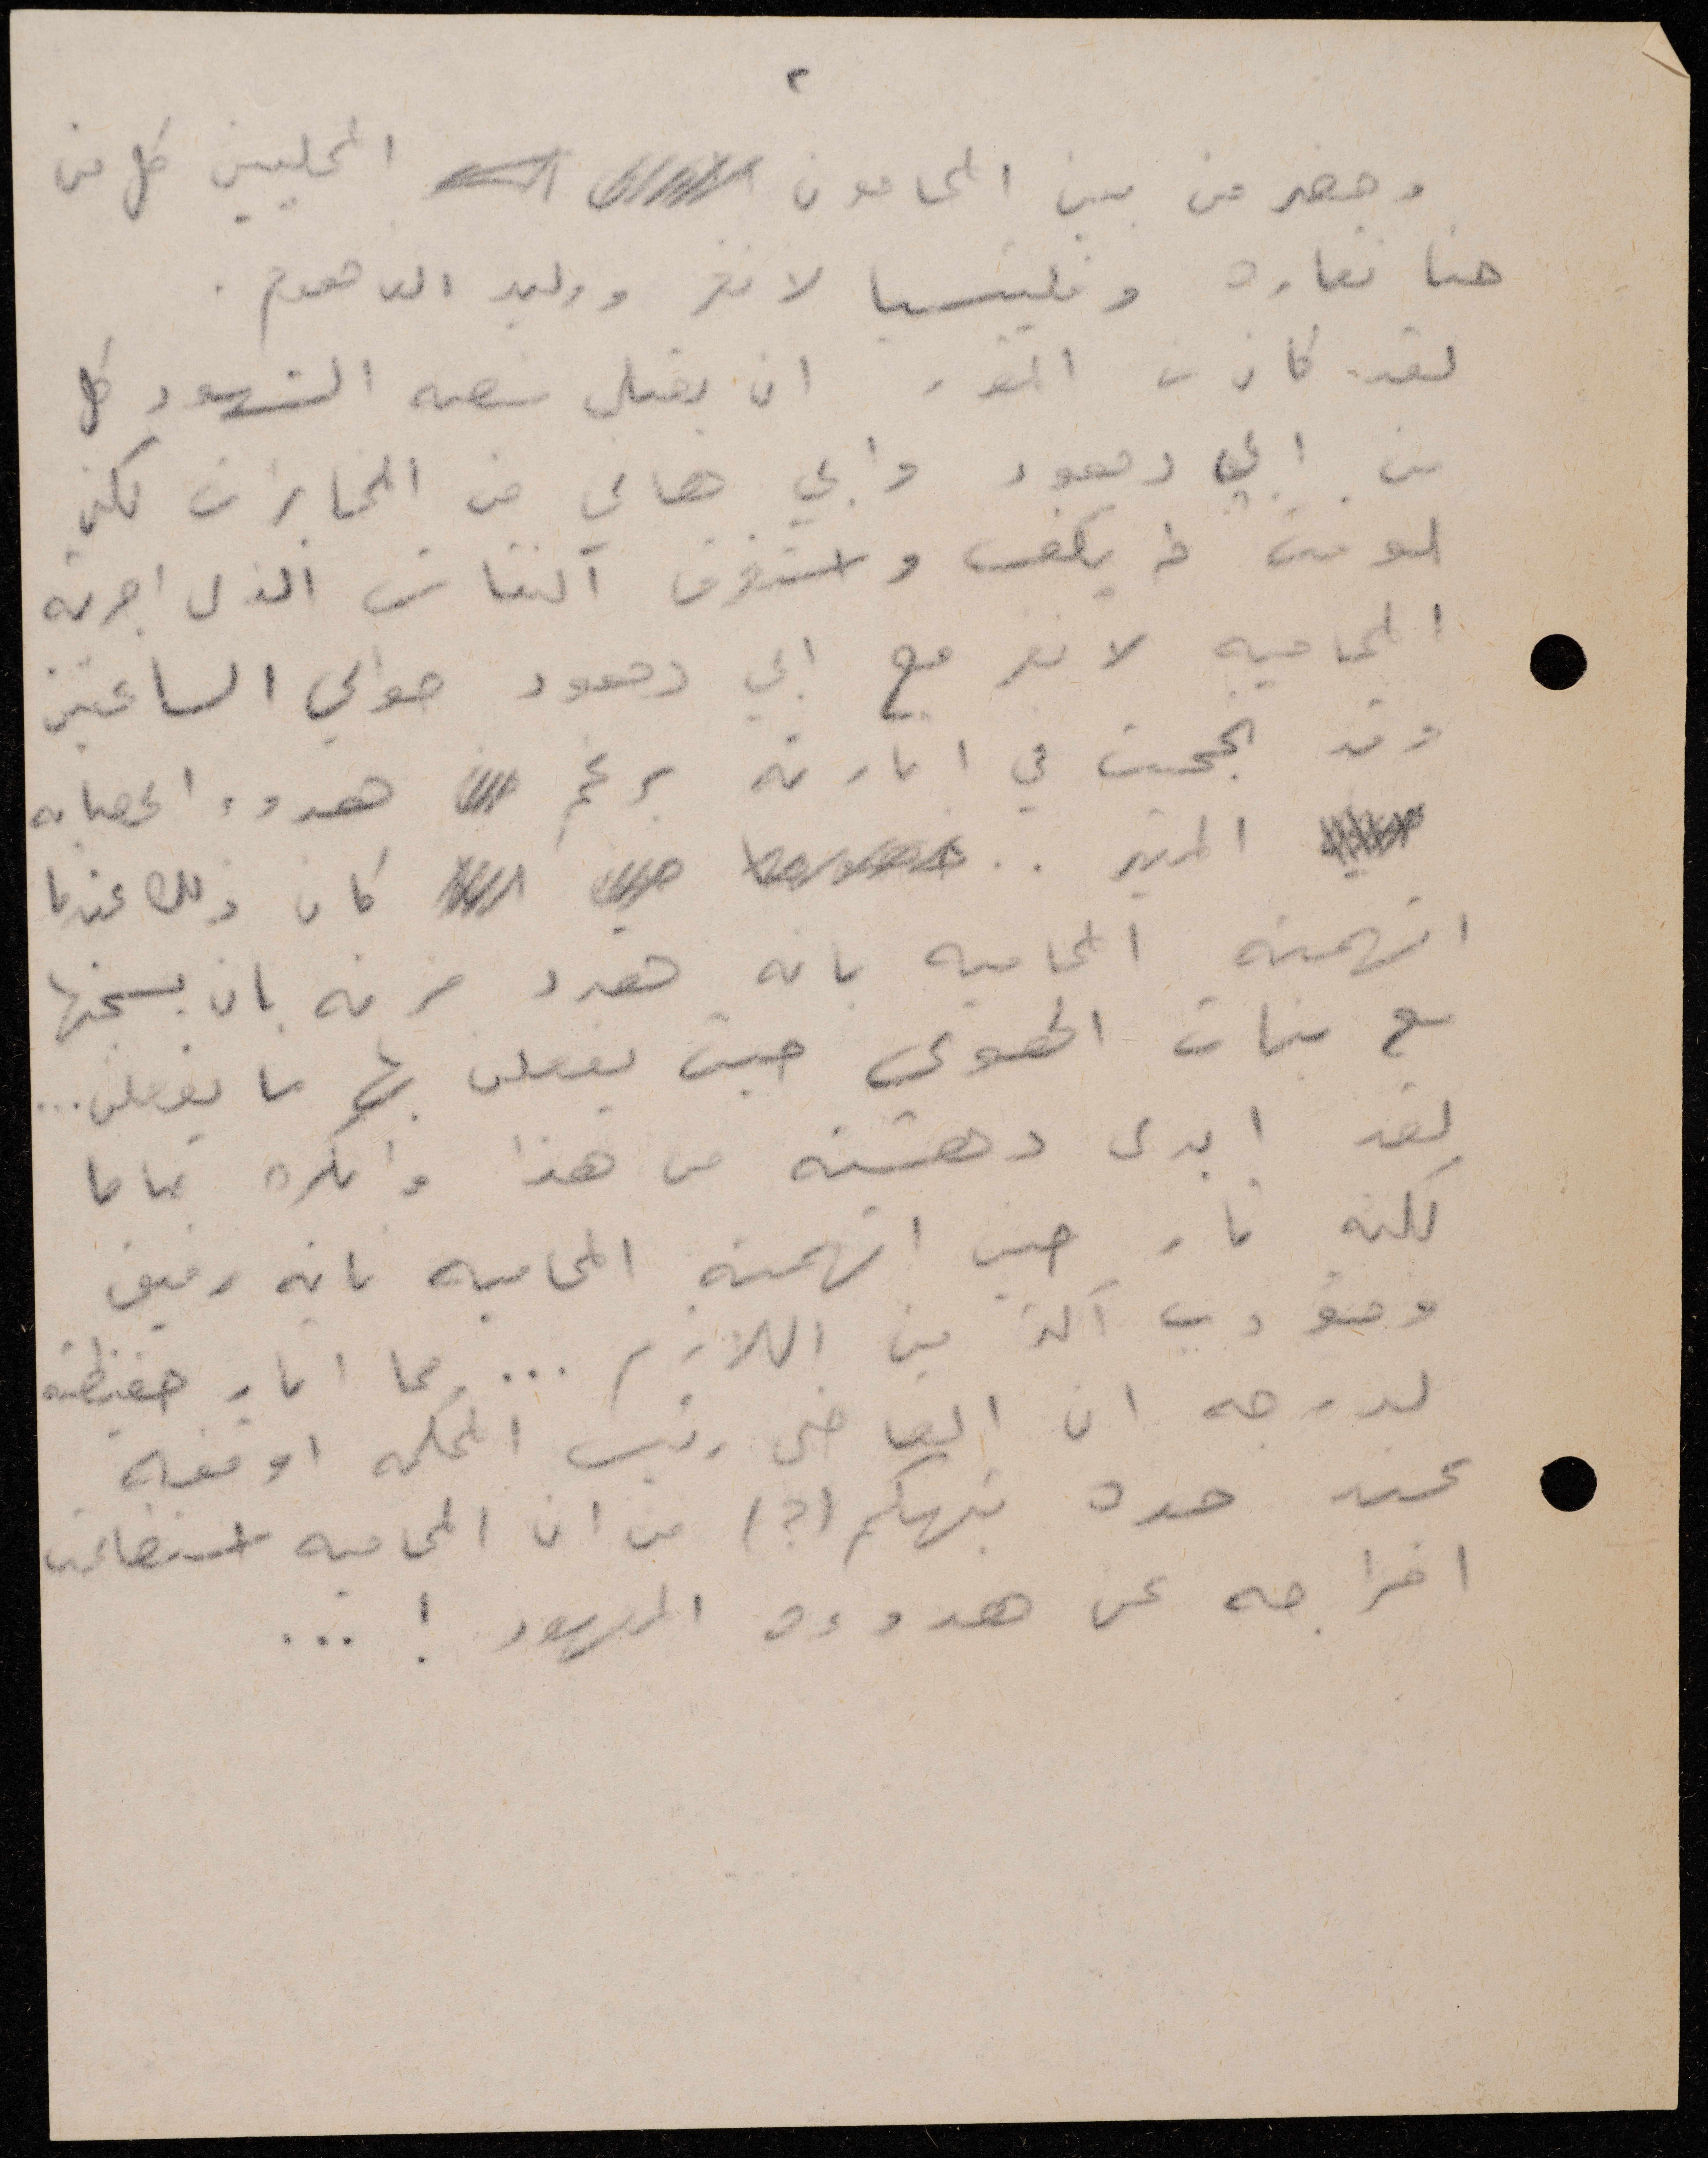 ٢
وحضر من بين المحامون المحليين كل من
حنا نقاره وفليتسيا لانغر ووليد الفاهوم .
لقد كان من المقرر ان يقابل بصفه الشهود كل
من ابي داهود وابي هاني من المخابرات لكن
الوقت لم يكف واستغرق النقاش الذي اجرته
المحاميه لانغر مع ابي داهود حوالي الساعتين
وقد نجحت في اثارته برغم هدوء اعصابه
المثير .. كان ذلك عندما
اتهمته المحاميه بانه هدد مزنه بان يسجنها
مع بنات الهوى حيث يفعلن بها ما يفعلن...
لقد ابدى دهشته من هذا وانكره تماما
لكنه ثار حين اتهمته المحاميه بانه رقيق
ومؤدب اكثر من اللازم ... مما اثار حفيظته
لدرجه ان القاضي رئيس المحكمه اوقفه
عند حده بتهكم (؟) من ان المحاميه استطاعت
اخراجه عن هدوءه المعهود ! ...